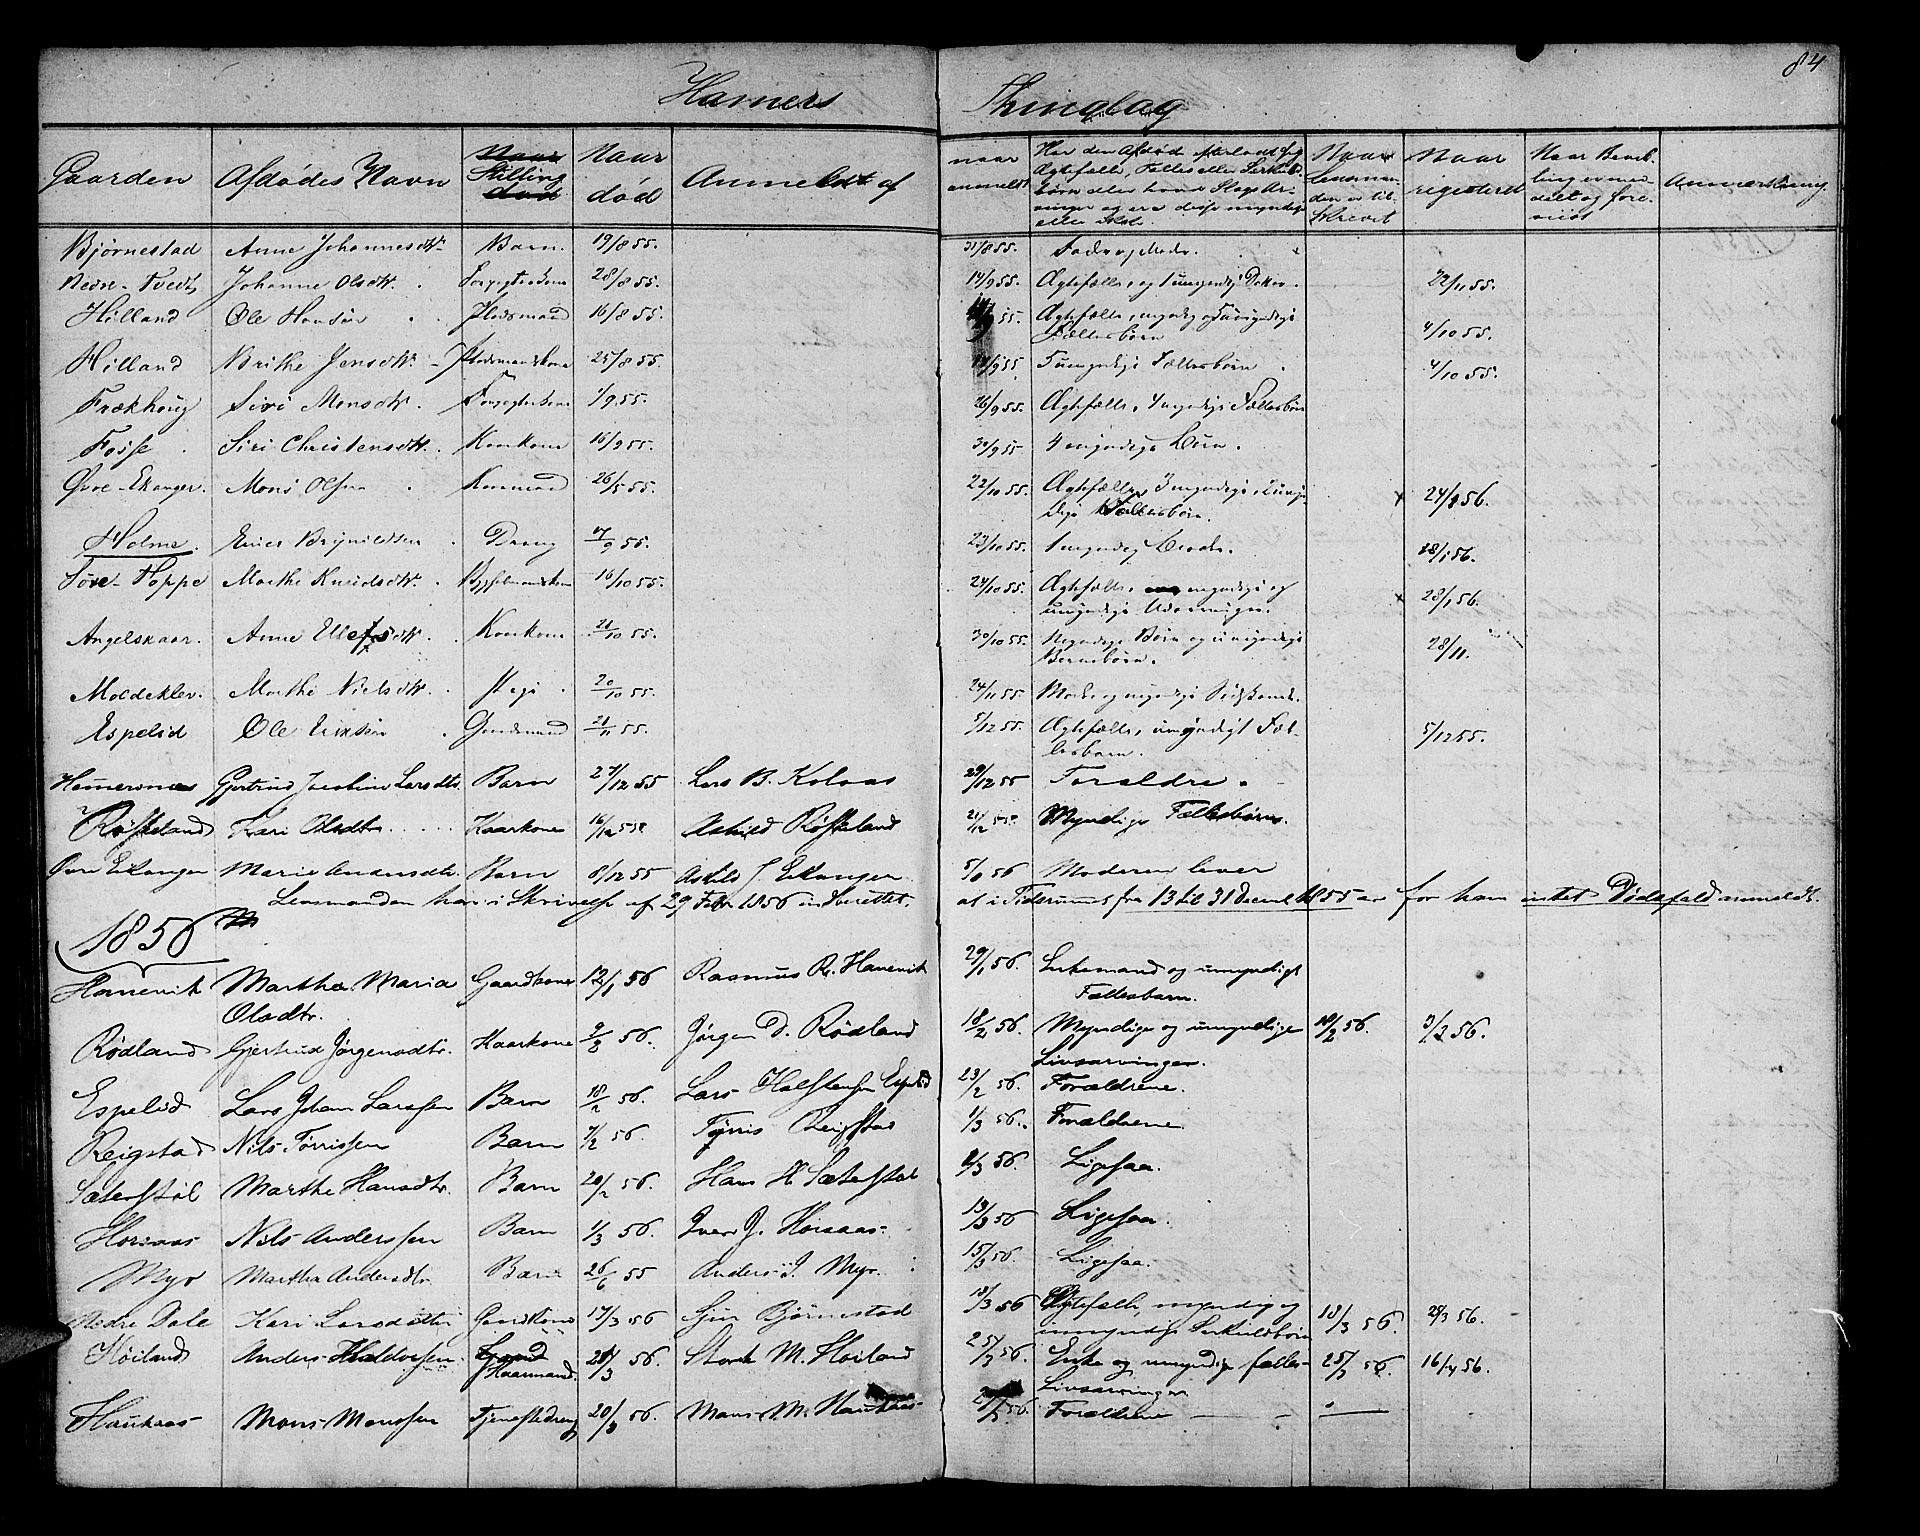 84
Hamers Thinglag
Gaarden | Afdødes Navn | Stilling | Naar død | Anmeldt af | naar anmeldt | Har den Afdød efterladt sig Ægtefælle, Fælles eller Særkuldbørn eller hvad Slags Arvinger og ere disse myndige eller ikke | Naar Lensmanden er tilskrevet | Naar registreret | Naar Bevilling er meddelt og forevist | Anmærkning
Bjørnestad | Anne Johannesdtr | Barn | 19/8 55. | 31/8 55. | Fader og Moder.
Nedre-Tvedt | Johanne Olsdtr. | 28/8 55. | 14/9 55. | Ægtefælle, og 1 umyndig Dotter. | 22/11 55.
Hilland | Ole Hansen | Pladsmand | 16/8 55. | 55. | Ægtefælle, myndig og umyndige
Fællesbørn | 4/10 55.
Hilland | Brithe Jensdtr. | Pladsmandskone | 25/8 55. | 14/9 55 | 5 umyndige Fællesbørn | 4/10 55.
Frækhoug | Siri Monsdtr. | 1/9 55. | 26/9 55. | Ægtefælle, 4 myndige Fællesbørn
Fosse | Siri Christensdtr. | Kaarkone | 16/9 55. | 30/9 55 | 4 myndige Børn.
Øvre-Ekanger. | Mons Olsen | Kaarmand | 26/5 55. | 22/10 55. | Ægtefælle, 3 myndige, 2 umyn-
dige Fællesbørn. | x | 24/1 56.
Holme. | Brynildsen | Dreng | 17/9 55. | 23/10 55. | 1 myndig Broder. | 28/1 56.
Søre-Toppe | Marthe Knudsdtr. | 16/10 55. | 24/10 55. | Ægtefælle, myndige og
umyndige Udarvinger. | x | 28/1 56.
Angelskaar. | Anne Ellefsdtr. | Kaarkone | 21/10 55. | 30/10 55. | Myndige Børn og umyndige
Børnebørn. | 28/11.
Moldeklev. | Marthe Nielsdtr. | Pige | 20/10 55. | 24/11 55. | Moder og myndige Sødskende.
Espelid | Ole Eriksen | Gaardmand | 21/11 55. | 5/12 55. | Ægtefælle, umyndigt Fæl-
lesbarn. | 5/12 55.
Hamersnes | Gjertrud Jacobine Larsdtr. | Barn | 27/12 55 | Lars B. Kolaas | 29/12 55 | Foraldre.
Røsseland | Kari Olsdtr | Kaarkone | 16/12 55 | Røsseland | 21/12 55 | Myndige Fællesbørn.
Øvre Eikanger | Marie Andersdtr. | Barn | 8/12 55 | Askils J Eikanger | 5/1 56 | Moderen lever
Lensmanden har i Skrivelse af 29 Febr 1856 indberettet, at i Tidsrummet fra 13 til 31 Decembr 1855 er for ham intet Dødsfald anmeldt.
1856
Hanevik | Martha Maria
Olsdtr. | Gaardkone | 12/1 56 | Rasmus R. Hanevik | 29/1 56. | Enkemand og umyndigt
Fællesbarn.
Rødland | Gjertrud Jørgensdtr. | Kaarkone | 9/2 56. | Jørgen D. Rødland | 18/2 56. | Myndige og umyndige
Livsarvinger. | 18/2 56. | 3/3 56.
Espelid | Lars Johan Larssen | Barn | 18/2 56. | Lars Halstensen Espelid | 23/2 56. | Forældrene.
Reigstad | Nils Tørrissen | Barn | 7/2 56. | Tørris Reigstad | 1/3 56. | Forældrene
Sæterstøl | Marthe Hansdtr. | Barn | 20/2 56. | Hans H Sæterstøl | 8/3 56. | Ligesaa.
Horsaas | Nils Anderssen | Barn | 1/3 56. | Iver J. Horsaas | 13/3 56 | Ligesaa.
Myr | Martha Andersdtr. | Barn | 26/6 55 | Anders J. Myr. | 15/3 56. | Ligesaa.
Nedre Dale | Kari Larsdatter | Gaardkone | 17/3 56 | Sjur Bjørnestad | 18/3 56 | Ægtefælle, myndig og
umyndige Særkuldsbørn | 18/3 56. | 29/3 56.
Høiland | Anders Haldorsen | Kaarmand | 20/3 56. | Stork M. Høiland | 25/3 56. | Enke og umyndige fælles-
Livsarvinger. | 25/3 56. | 16/4 56.
Haukaas | Mons Monssen | Tjenestedreng | 20/3 56. | Mons M. Haukaas | 56. | Forældrene